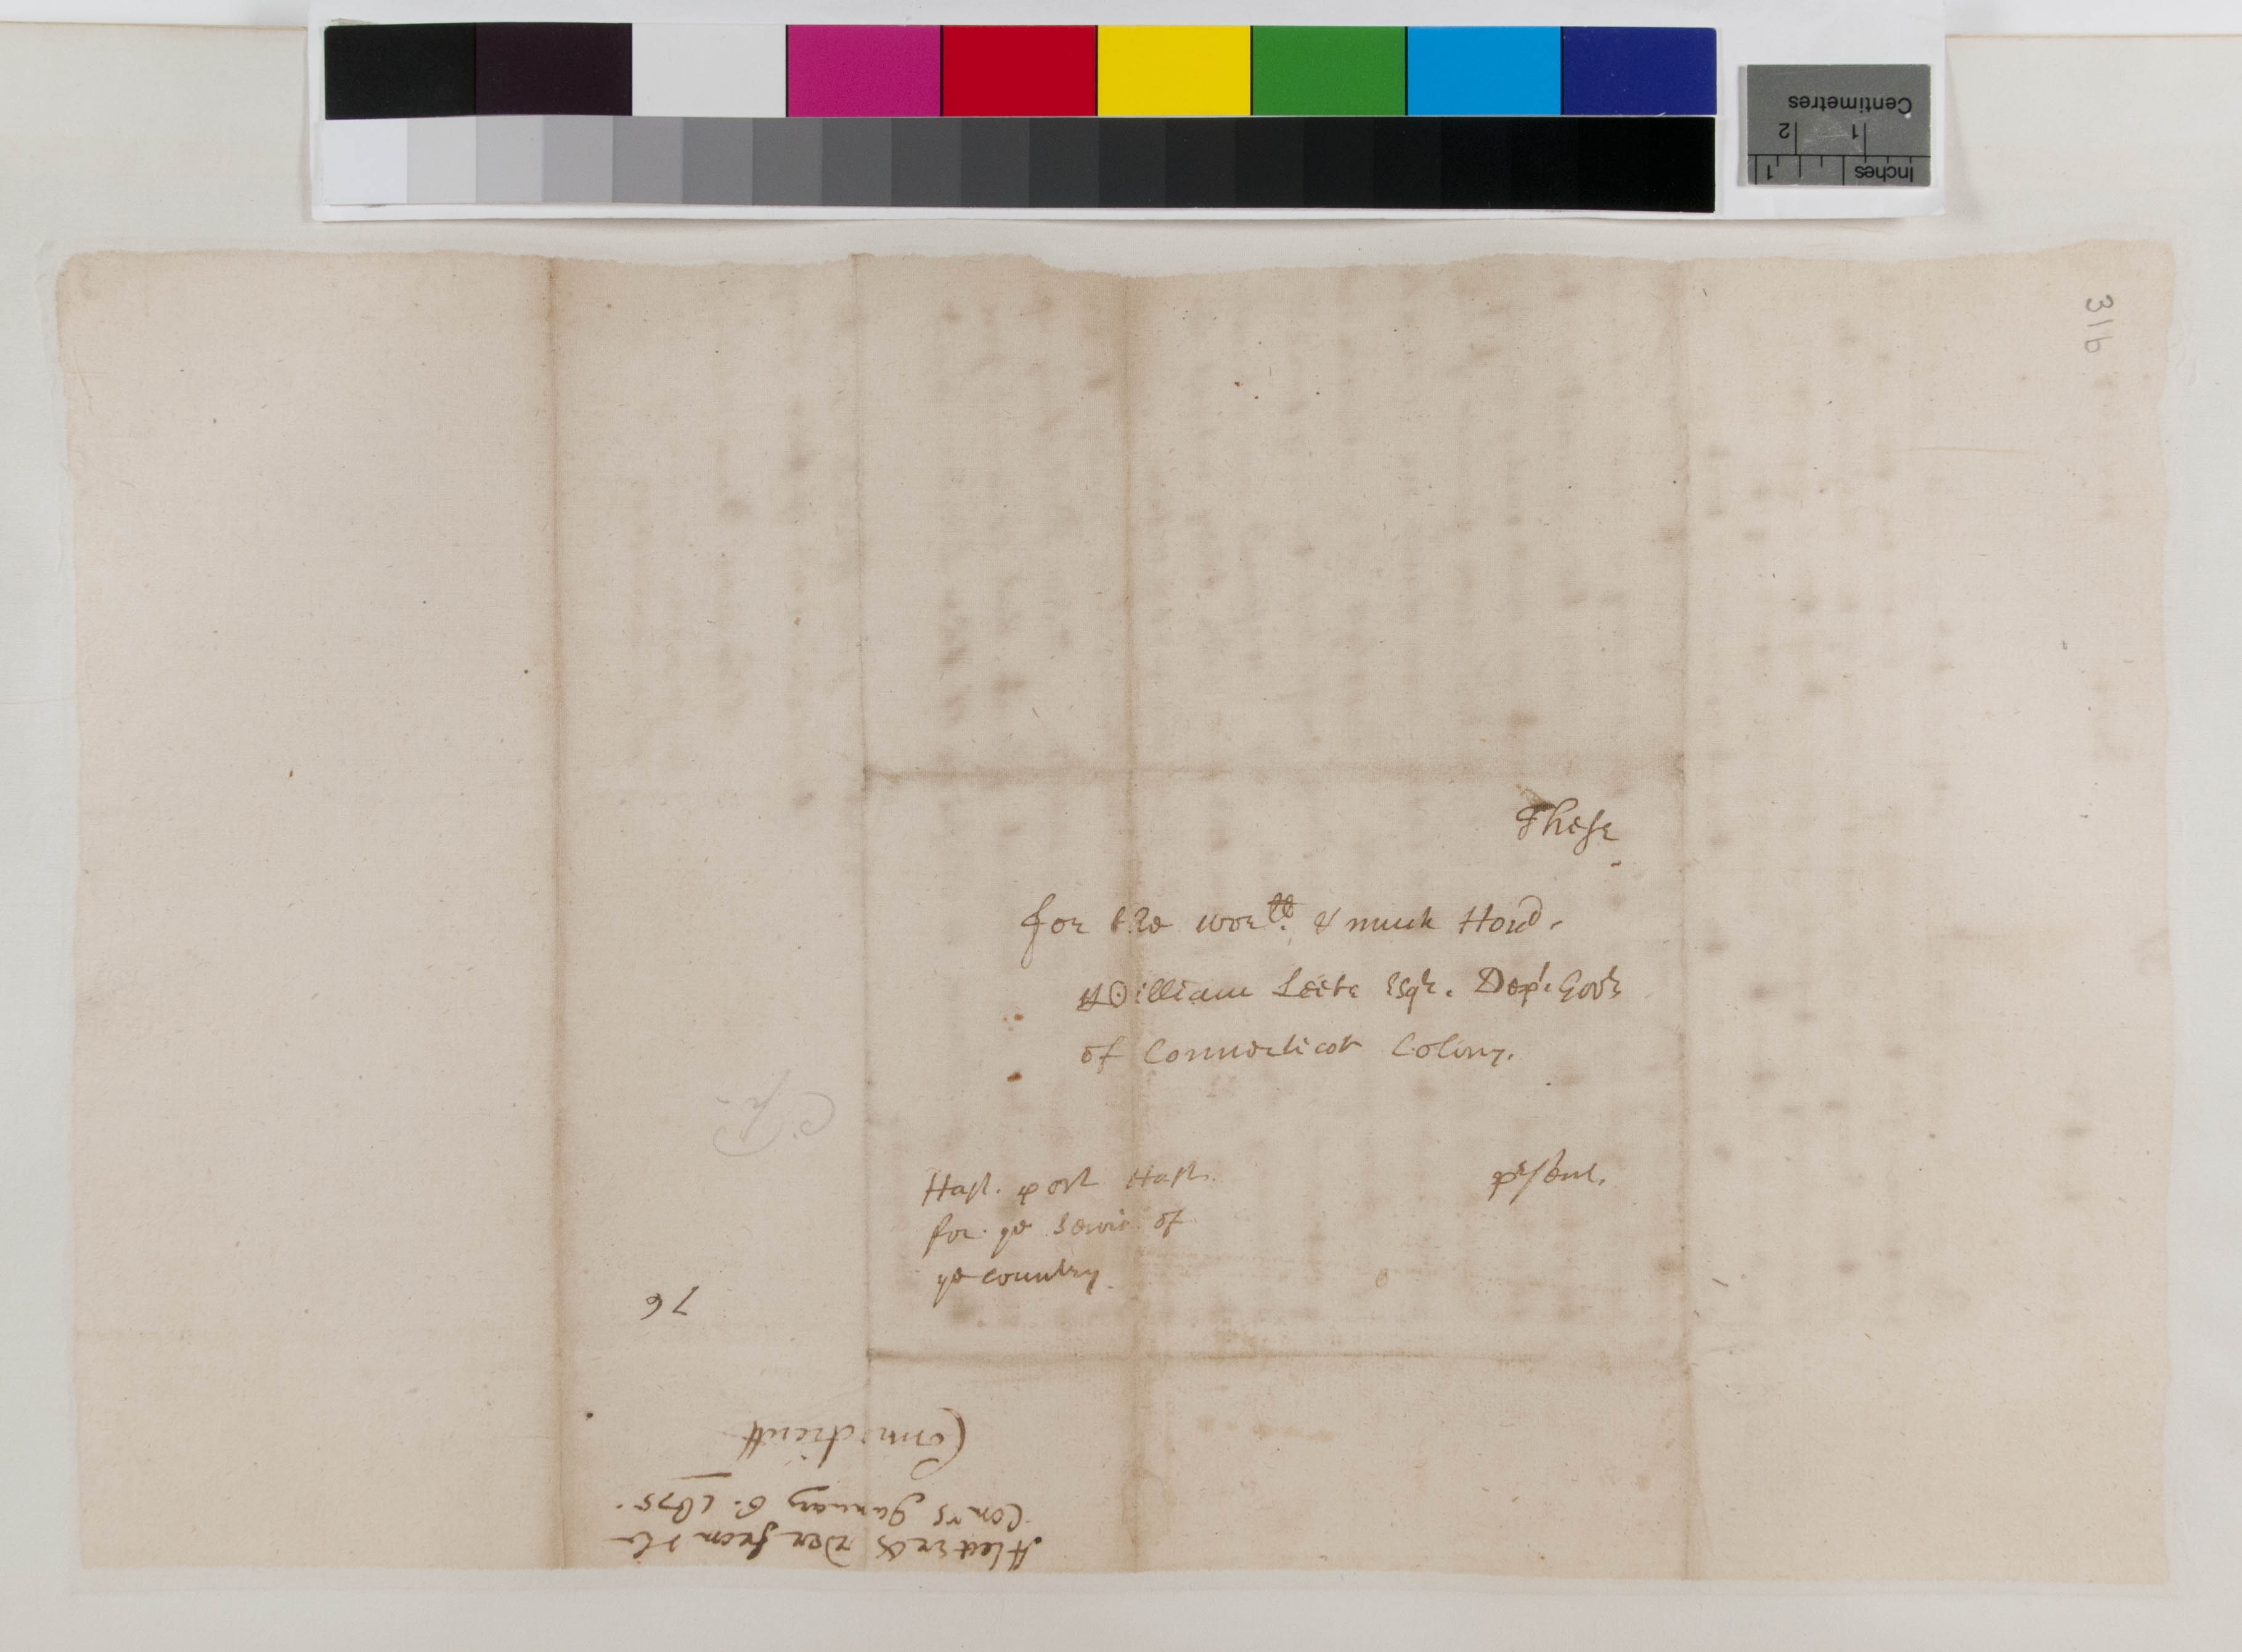 Centimetres
1 2
Inches 1
31b
These
for the worll. & much Honrd.
William Leete Esqr. Dept. Govr
of Connecticot Colony.
Hast. post Hast.
for. ye Servic. of
ye country.
prsent.
76
Connecticutt
A letter from the
Comrs January 6. 1675.